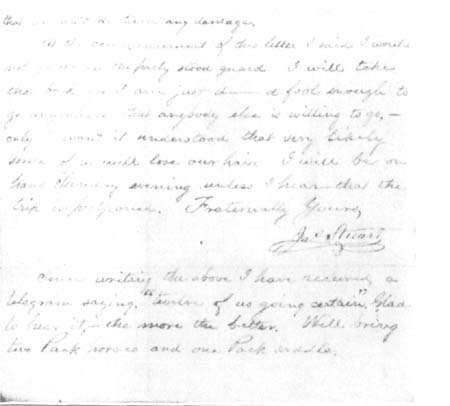 that we can't do them any damage.
At the commencement of this letter I said I would
not go unless the party stood guard. I will take
that back as I am just d——d fool enough to
go anywhere that anybody else is willing to go,—
only want it understood that very likely
some of us will lose our hair. I will be on
hand evening, unless I hear that the
trip is postponed. Fraternally Yours,
Jas Stuart
Since writing the above I have received a
telegram saying, "twelve of us going certain". Glad
to hear it,— the more the better. Will bring
two Pack horses and one Pack saddle.